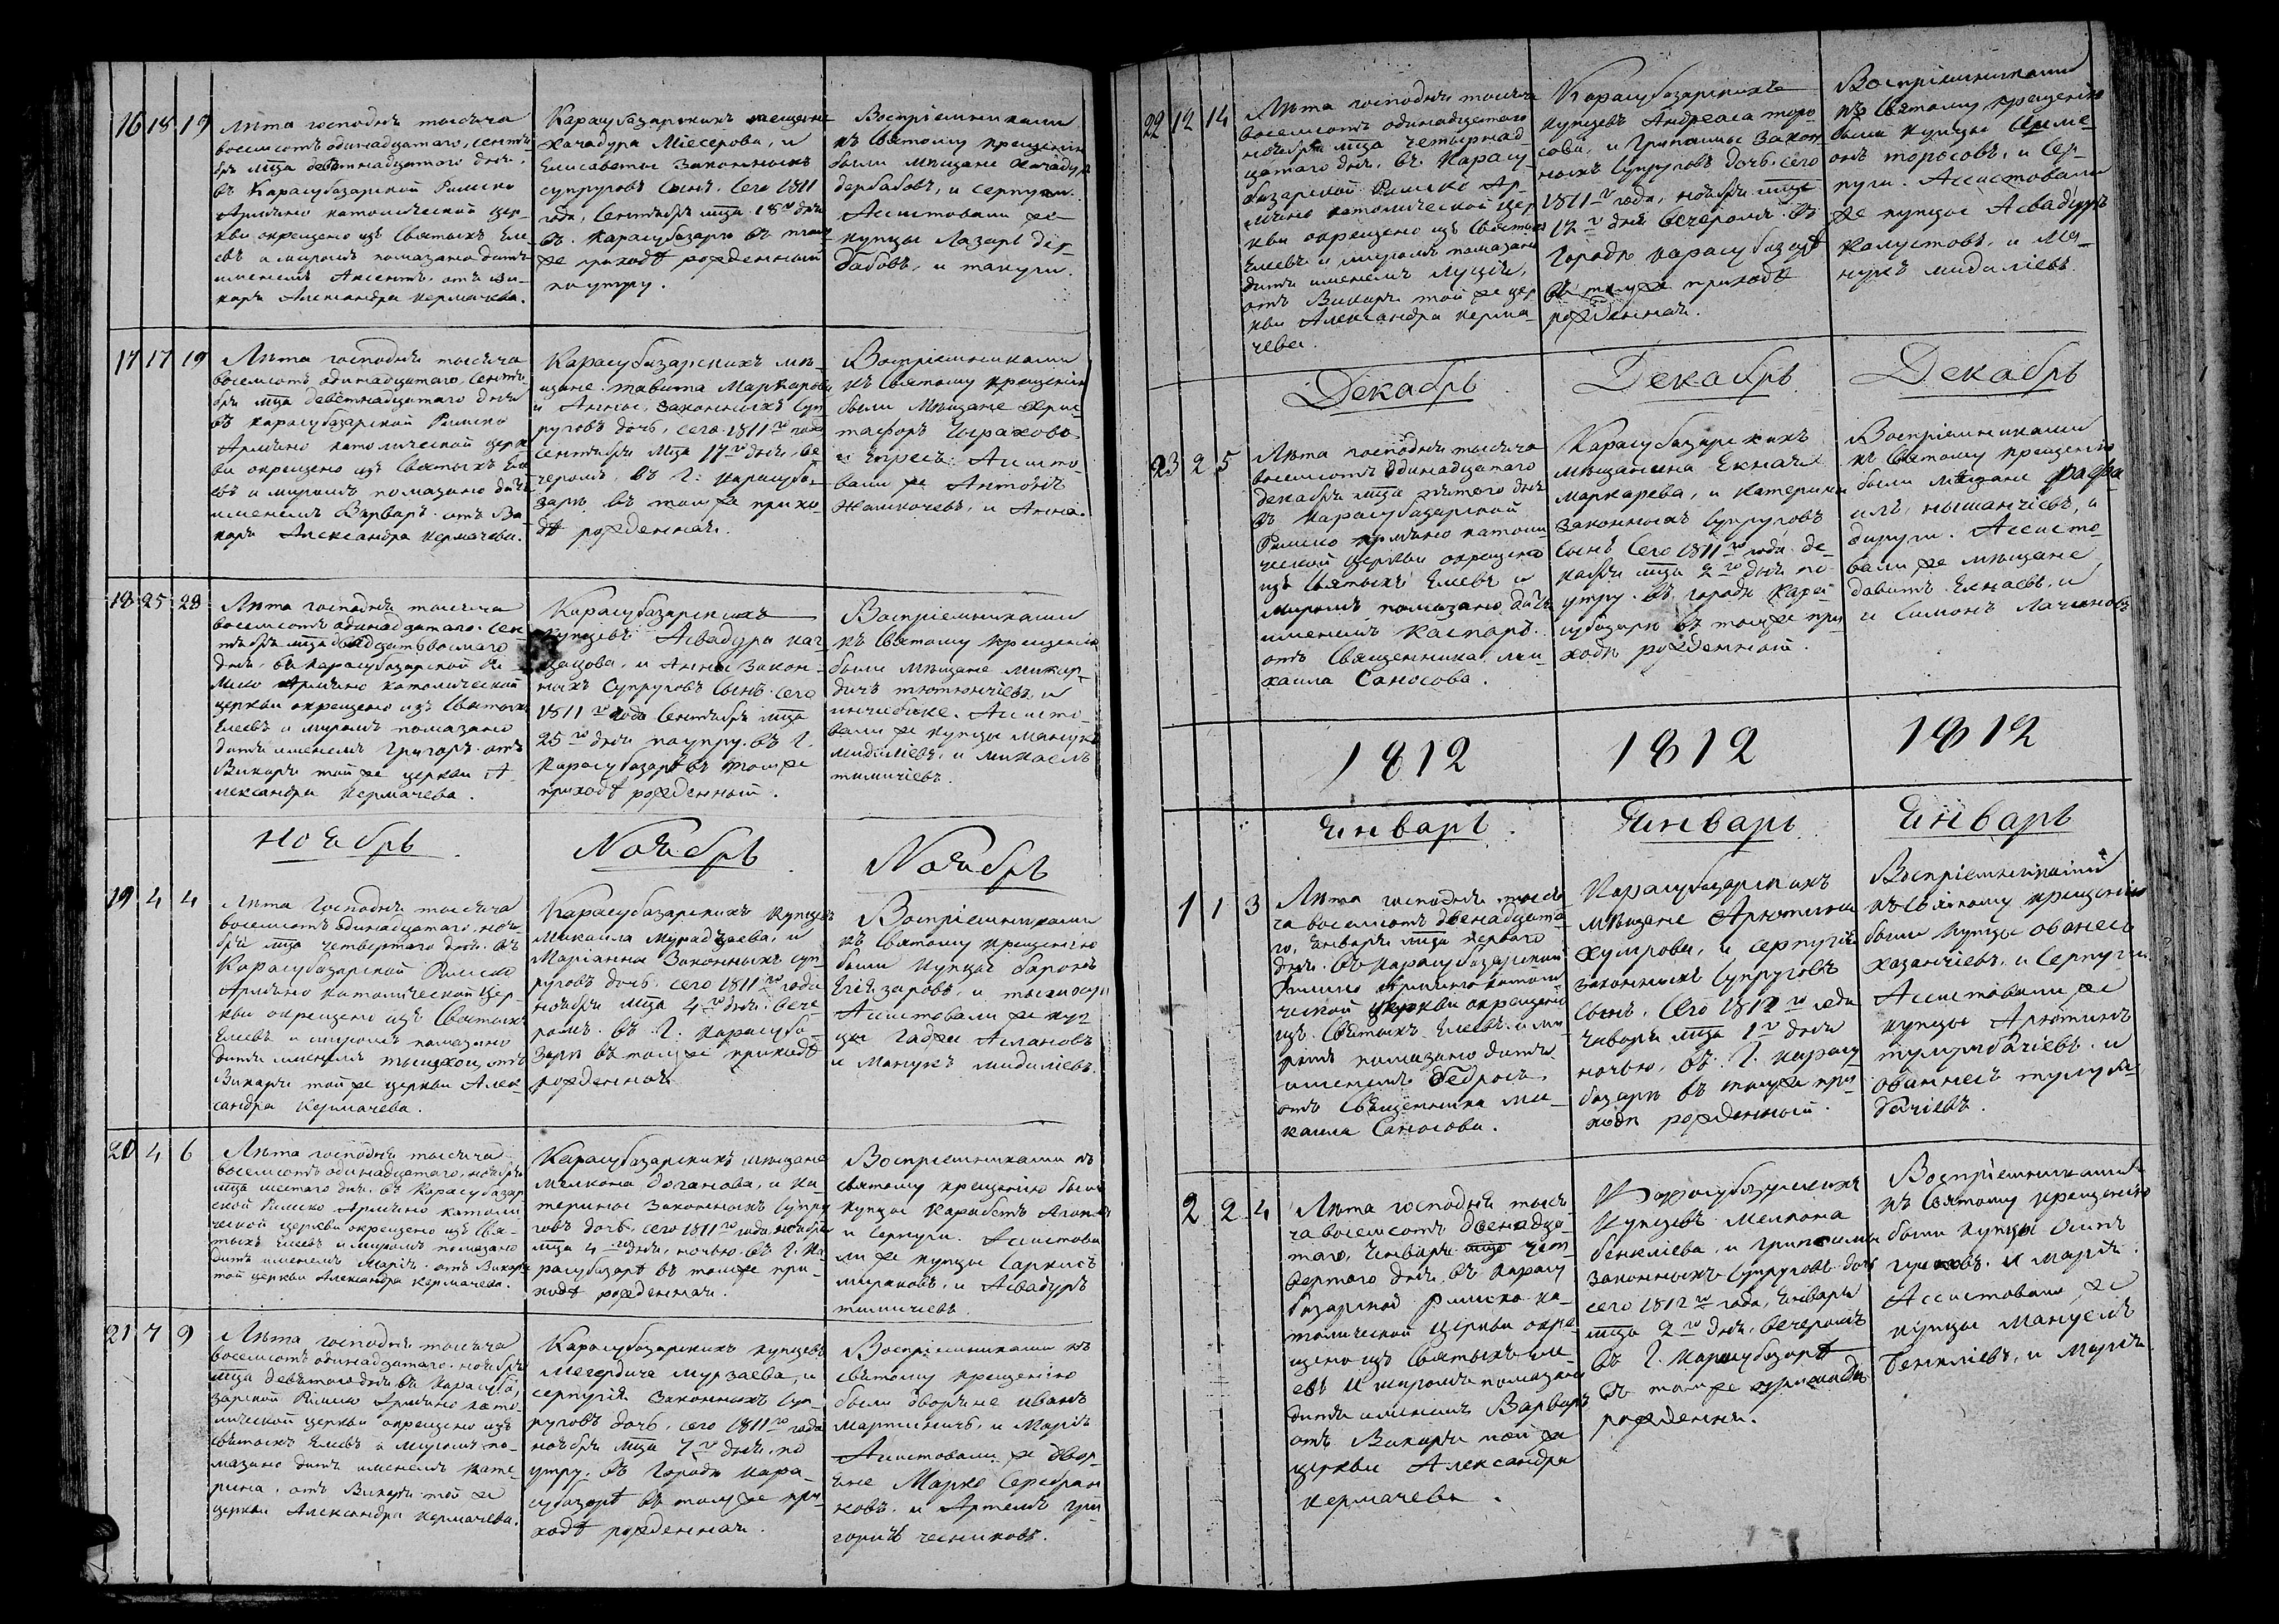 16 18 19
Лѣта господнѧ тысяча
восемсотъ одинадцатаго, сентѧ-
брѧ мца девѧтнадцатаго днѧ,
въ Карасубазарской Римско
Армѧно католической цер-
кви окрещено изъ Святыхъ Еле-
евъ и миромъ помазано дитѧ
именемъ Аксентъ, отъ Ви-
карѧ Александра Кермачева.
Карасубазарскихъ мещане
Хачадура Міесерова, и
Елисаветы Законныхъ
супруговъ Сынъ. Сего 1811
года, Сентѧбрѧ мца 18го днѧ
въ Карасубазарѣ въ томъ
же приходѣ рожденный
по утру.
Воспріемниками
къ Святому крещенію
были Мѣщане Хачадуръ
дербабовъ, и серпуги.
Ассистовали же
купцы Лазарь дер-
бабовъ, и такуги.
17 17 19
Лѣта господнѧ тысяча
восемсотъ одинадцатаго, Сентѧ-
брѧ мца девѧтнадцатаго днѧ
въ Карасубазарской Римско
Армѧно католической церк
ви окрещено изъ Святыхъ Еле
евъ и миромъ помазано дитѧ
именемъ Варваръ отъ Ви-
карѧ Александра Кермачева.
Карасубазарскихъ мѣ-
щане тавита Маркарова
и Анны, Законныхъ Суп-
руговъ дочь, сего 1811го года
сентѧбрѧ мца 17го днѧ, ве-
черомъ, въ Г. Карасуба-
зарѣ въ томъ же прихо-
дѣ рожденнаѧ.
Воспріемниками
къ Святому крещенію
были Мѣщане Хрис-
тафоръ
Ассисто-
вали же Антонъ
и Анна.
18 25 28
Лѣта господнѧ тысяча
восемсотъ одинадцатаго. Сен
тѧбрѧ мца двадцатьвосмаго
днѧ, въ Карасубазарской Ри-
мско Армѧно католической
церкви окрещено изъ Святыхъ
Елеевъ и миромъ помазано
дитѧ именемъ Григоръ отъ
Викарѧ той же церкви А-
лександра Кермачева.
Карасубазарскихъ
купцевъ Асвадура
и Анны Закон-
ныхъ Супруговъ Сынъ. сего
1811го года Сентѧбрѧ мца
25го днѧ поутру. въ Г.
Карасубазарѣ въ томъ же
приходѣ рожденный.
Воспріемниками
къ Святому крещенію
были мѣщане Микир-
дичъ тютюнчіевъ, и
Ассисто-
вали же купцы Манукъ
мидиліевъ, и микаелъ
тимичіевъ.
Ноѧбрь
Ноѧбрь
Ноѧбрь
19 4 4
Лѣта Господнѧ тысяча
восемсотъ одинадцатаго, ноѧ-
брѧ мца четвертаго днѧ. въ
Карасубазарской Римско
Армѧно католической цер-
кви окрещено изъ Святыхъ
Елеевъ и миромъ помазано
дитѧ именемъ отъ
Викарѧ той же церкви Алек
сандра Кермачева.
Карасубазарскихъ Купцевъ
Микаила Мурадъзаева, и
Маріанны Законныхъ суп-
руговъ дочь, сего 1811го года
ноѧбрѧ мца 4го днѧ. вече
ромъ. въ Г. Карасуба-
зарѣ въ томъ же приходѣ
рожденнаѧ.
Воспріемниками
къ Святому крещенію
были купцы баронъ
и
Ассистовали же куп-
цы Габри Аслановъ
и Манукъ мидиліевъ.
20 4 6
Лѣта господнѧ тысяча
восемсотъ одинадцатаго, ноѧбрѧ
мца шестаго днѧ. въ Карасубазар
ской Римско Армѧно католи
ческой церкви окрещено изъ Свѧ-
тыхъ Елеевъ и миромъ помазано
дитѧ именемъ Маріѧ. отъ Викарѧ
той церкви Александра Кермачева.
Карасубазарскихъ мѣщане
Мелкона доганова, и ка-
терины Законныхъ Супру
говъ дочь, сего 1811го года, ноѧбрѧ
мца 4го днѧ, ночью въ Г. Ка-
расубазарѣ въ томъ же при-
ходѣ рожденнаѧ.
Воспріемниками къ
святому крещенію были
купцы Карабетъ
и Серпуги. Ассистова
ли же купцы Саркисъ
мираковъ, и Асвадуръ
тимичіевъ.
21 7 9
Лѣта господнѧ тысяча
восемсотъ одинадцатаго. ноѧбрѧ
мца девѧтаго днѧ, въ Карасуба-
зарской Римско Армѧно като-
лической церкви окрещено изъ
свѧтыхъ Елеевъ и миромъ по-
мазано дитѧ именемъ Кате-
рина, отъ Викарѧ той же
церкви Александра Кермачева.
Карасубазарскихъ купцевъ
Мегердича Мурзаева, и
серпугіѧ Законныхъ Суп-
руговъ дочь, сего 1811го года
ноѧбрѧ мца 7го днѧ, по
утру. въ Городѣ Кара-
субазарѣ въ томъ же при-
ходѣ рожденнаѧ.
Воспріемниками къ
святому крещенію
были дворѧне иванъ
мартиничъ, и Маріѧ
Ассистовали же двор-
ѧне Марко Серебрѧ-
ковъ. и Артемъ гри
горичъ чесниковъ.
22 12 14
Лѣта господнѧ тысяча
восемсотъ одинадцатаго
ноѧбрѧ мца четырнад
цатаго днѧ, въ Карасу
базарской Римско Ар-
мѧно католической цер
кви окрещено изъ Святыхъ
Елеевъ и миромъ помазано
дитѧ именемъ Луціѧ,
отъ Викарѧ той же цер
кви Александра Керма-
чева.
Карасубазарскихъ
купцевъ Андреаса торо-
сова, и Грипсимы Закон
ныхъ Супруговъ дочь. сего
1811го года, ноѧбрѧ мца
12го днѧ вечеромъ. въ
Городѣ Карасубазарѣ
въ томъ же приходѣ
рожденнаѧ.
Воспріемниками
къ Святому крещенію
были купцы Симе-
онъ торосовъ, и Сер-
пуги. Ассистовали
же купцы Асвадуръ
Калустовъ, и Ма-
нукъ мидиліевъ.
Декабрь
Декабрь
Декабрь
23 2 5
Лѣта господнѧ тысяча
восемсотъ одинадцатаго
декабрѧ мца пѧтаго днѧ
въ Карасубазарской
Римско Армѧно католи
ческой церкви окрещено
изъ Святыхъ Елеевъ и
миромъ помазано дитѧ
именемъ Каспаръ.
отъ Священника ми-
каила Саносова.
Карасубазарскихъ
мѣщанина Екнаѧ
Маркарева, и Катерины
Законныхъ Супруговъ
Сынъ Сего 1811го года де-
кабрѧ мца 2го днѧ по-
утру. въ городѣ Карa-
субазарѣ въ томъ же при
ходѣ рожденный.
Воспріемниками
къ Святому крещенію
были мѣщане Рафа-
илъ, нышанчіевъ, и
Ассисто
вали же мѣщане
давитъ Екнаевъ, и
и Симонъ Лачиновъ
1812
1812
1812
Ѧнварь
Ѧнварь
Ѧнварь
1 1 3
Лѣта господнѧ тысѧ-
ча восемсотъ двенадцата
го, Ѧнварѧ мца перваго
днѧ. въ Карасубазарской
Римско Армѧно католи
ческой церкви окрещено
изъ Свѧтыхъ Елеевъ. и ми-
ромъ помазано дитѧ
именемъ бедросъ
отъ Свѧщенника Ми-
каила Саносова.
Карасубазарскихъ
мѣщане Арютина
и серпугіѧ
законныхъ Супруговъ
Сынъ, Сего 1812го года
Ѧнварѧ мца 1го днѧ
ночью, въ Г. Карасу
базарѣ въ томъ же при-
ходѣ рожденный.
Воспріемниками
къ Святому крещенію
были купцы ованесъ
хазанчіевъ, и Серпуги.
Ассистовали же
купцы Арютинъ
и
ованнесъ тулумба-
бачіевъ.
2 2 4
Лѣта господнѧ тысѧ-
ча восемсотъ двенадца-
таго, Ѧнварѧ мца чет-
вертаго днѧ, въ Карасу
базарской Римско ка-
толической Церкви окре-
щено изъ Святыхъ еле-
евъ и миромъ помазано
дитѧ именемъ Варваръ
отъ Викарѧ той же
церкви Александра
Кермачева.
Карасубазарскихъ
Купцевъ Мелкона
бенкліева, и Грипсимы
законныхъ Супруговъ дочь
сего 1812го года, Ѧнварѧ
мца 2го днѧ, вечеромъ
въ Г. Карасубазарѣ
въ томъ же приходѣ
рожденнаѧ.
Воспріемниками
къ Святому крещенію
были купцы
и Маріѧ.
Ассистовали же
купцы Мануелъ
Бенкліевъ, и Маріѧ